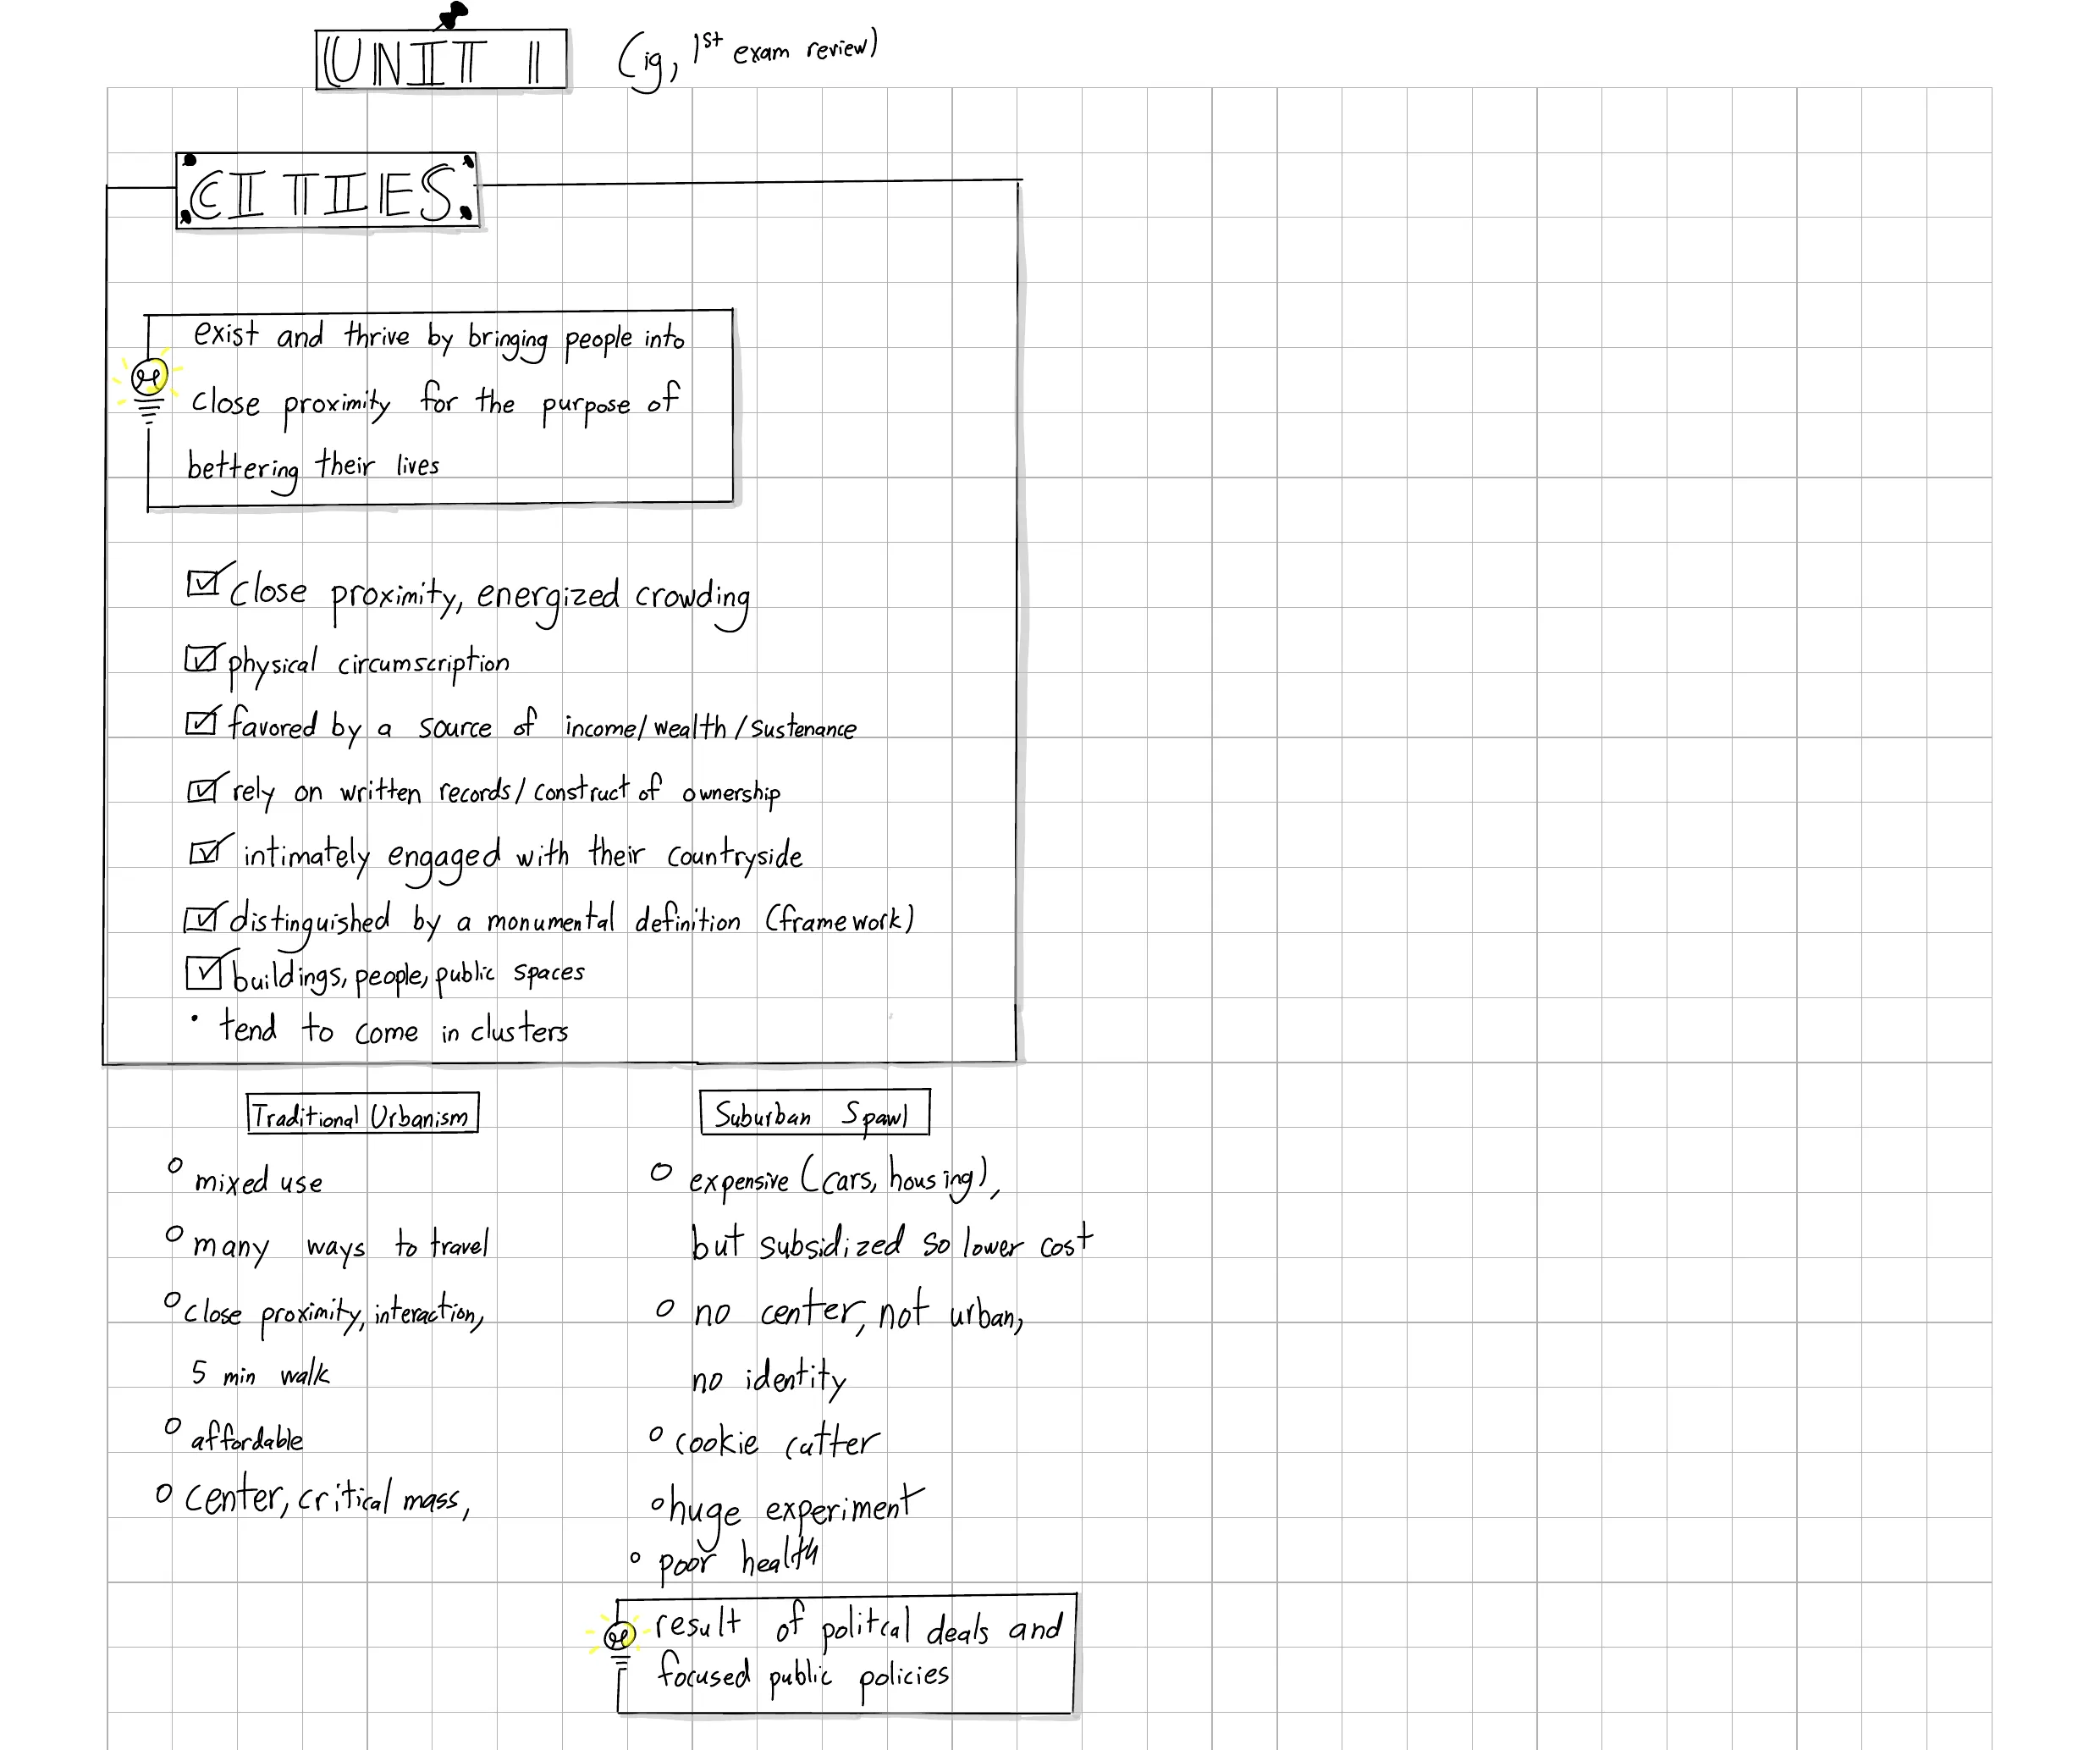 UNIT 1 (ig, 1st exam review)
CITIES
exist and thrive by bringing people into
close proximity for the purpose of
bettering their lives
close proximity, energized crowding
physical circumscription
favored by a source of income/wealth/sustenance
rely on written records/construct of ownership
intimately engaged with their countryside
distinguished by a monumental definition (framework)
buildings, people, public spaces
• tend to come in clusters
Traditional Urbanism
mixed use
many ways to travel
close proximity, interaction,
5 min walk
affordable
center, critical mass,
Suburban Spawl
expensive (cars, housing),
but subsidized so lower cost
no center, not urban,
no identity
cookie cutter
huge experiment
poor health
result of politcal deals and
focused public policies